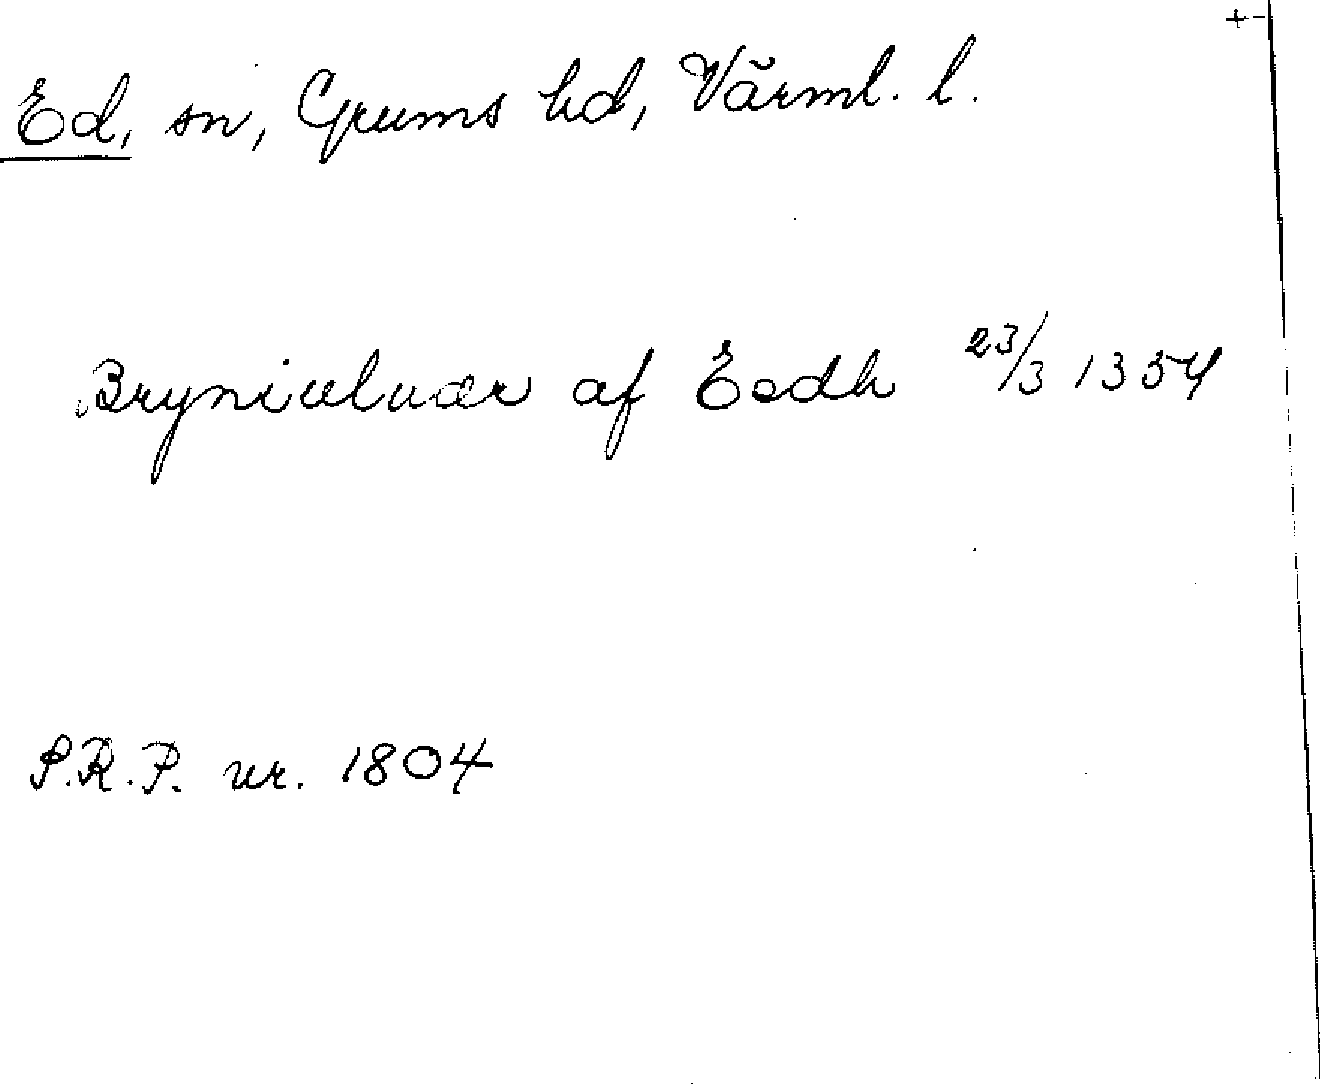 Ed, sn, Grums hd, Värml. l.
Bryniuluær af Eedh 23/3 1354
S.R.P. nr. 1804